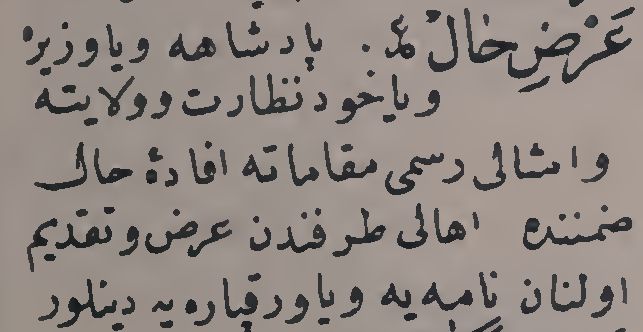 عَرْضِ حَالْ ع. پادشاهه ویاوزیره
ویاخود نظارت وولایته
وامثالی رسمی مقاماته افادۀ حال
ضمننده اهالی طرفندن عرض وتقدیم
اولنان نامه یه ویاورقپاره یه دینلور